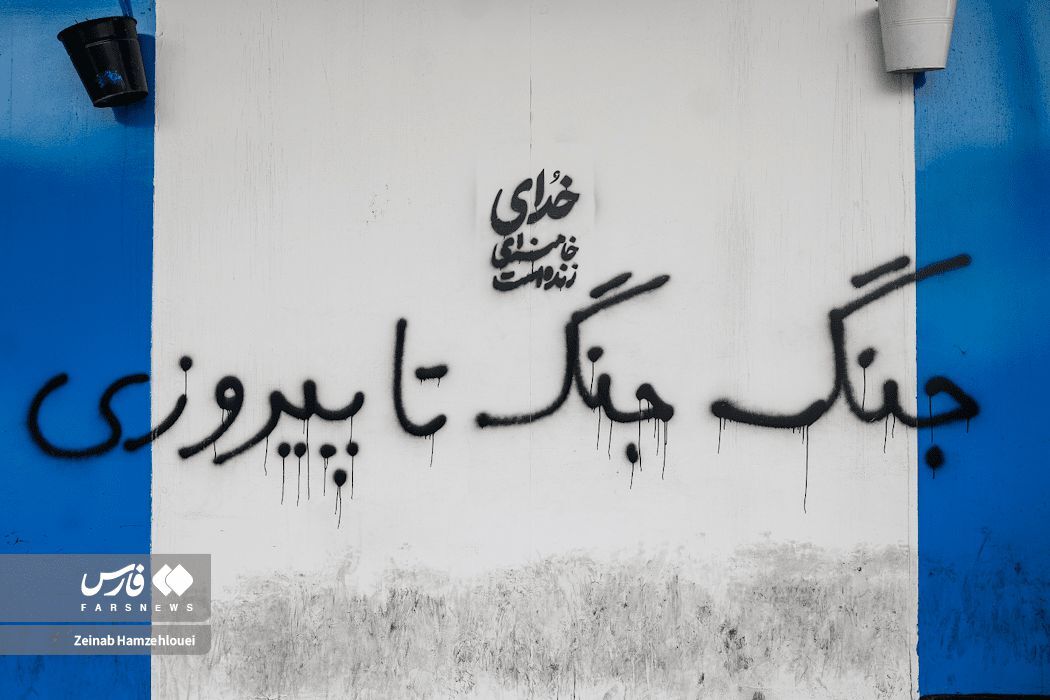 خدای
خامنه‌ای
زنده است
جنگ جنگ تا پیروزی
فارس
FARSNEWS
Zeinab Hamzehlouei